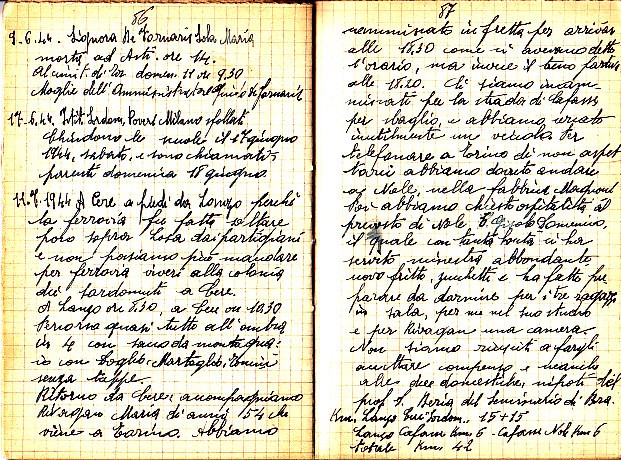 86
9.6.44. Signora De Fornaris Lola Maria
morta ad Asti. ore 14.
Moglie dell'Amministratore De Fornaris
17.6.44. Istit. Sordom. Poveri Milano sfollati
Chiudono le scuole il 17 giugno
1944, sabato, e sono chiamati i
parenti domenica 18 giugno.
1944 A Cere a piedi da Lanzo perchè
la ferrovia fu fatta saltare
poco sopra Losa dai partigiani
e non possiamo più mandare
per ferrovia viveri alla colonia
dei sordomuti a Cere.
a Cere on 10.30
Percorsa quasi tutto all'ombra
in 4 con sacco da montagna:
io con Foglio, Martoglio,
senza tappe.
Ritorno da Cere, accompagniamo
Rivagan Maria di anni 15 che
viene a Torino. Abbiamo
87
camminato in fretta per arrivare
alle 18.30 come ci avevano detto
l'orario, ma invece il treno partiva
alle 18.20. Ci siamo incam-
minati per la strada di Cafasse
per sbaglio, e abbiamo cercato
inutilmente un veicolo. Per
telefonare a Torino di non aspet
tarci abbiamo dovuto andare
a Nole, nella fabbrica Magnoni
Poi abbiamo chiesto ospitalità al
prevosto di Nole T. Domenico,
il quale con tanta bontà ci ha
servito minestra abbondante
uovo fritto, zucchetti e ha fatto pre
parare da dormire per i tre ragazzi
in sala, per me nel suo studio
e per Rivagan una camera.
Non siamo riusciti a fargli
accettare compenso e neanche
alle due domestiche, nipoti del
prof. T. Beria del Seminario di Bra.
Km. Lanzo Sordom.. 15+15
Lanzo Cafasse Km 6 - Cafasse Nole Km 6
totale Km 42